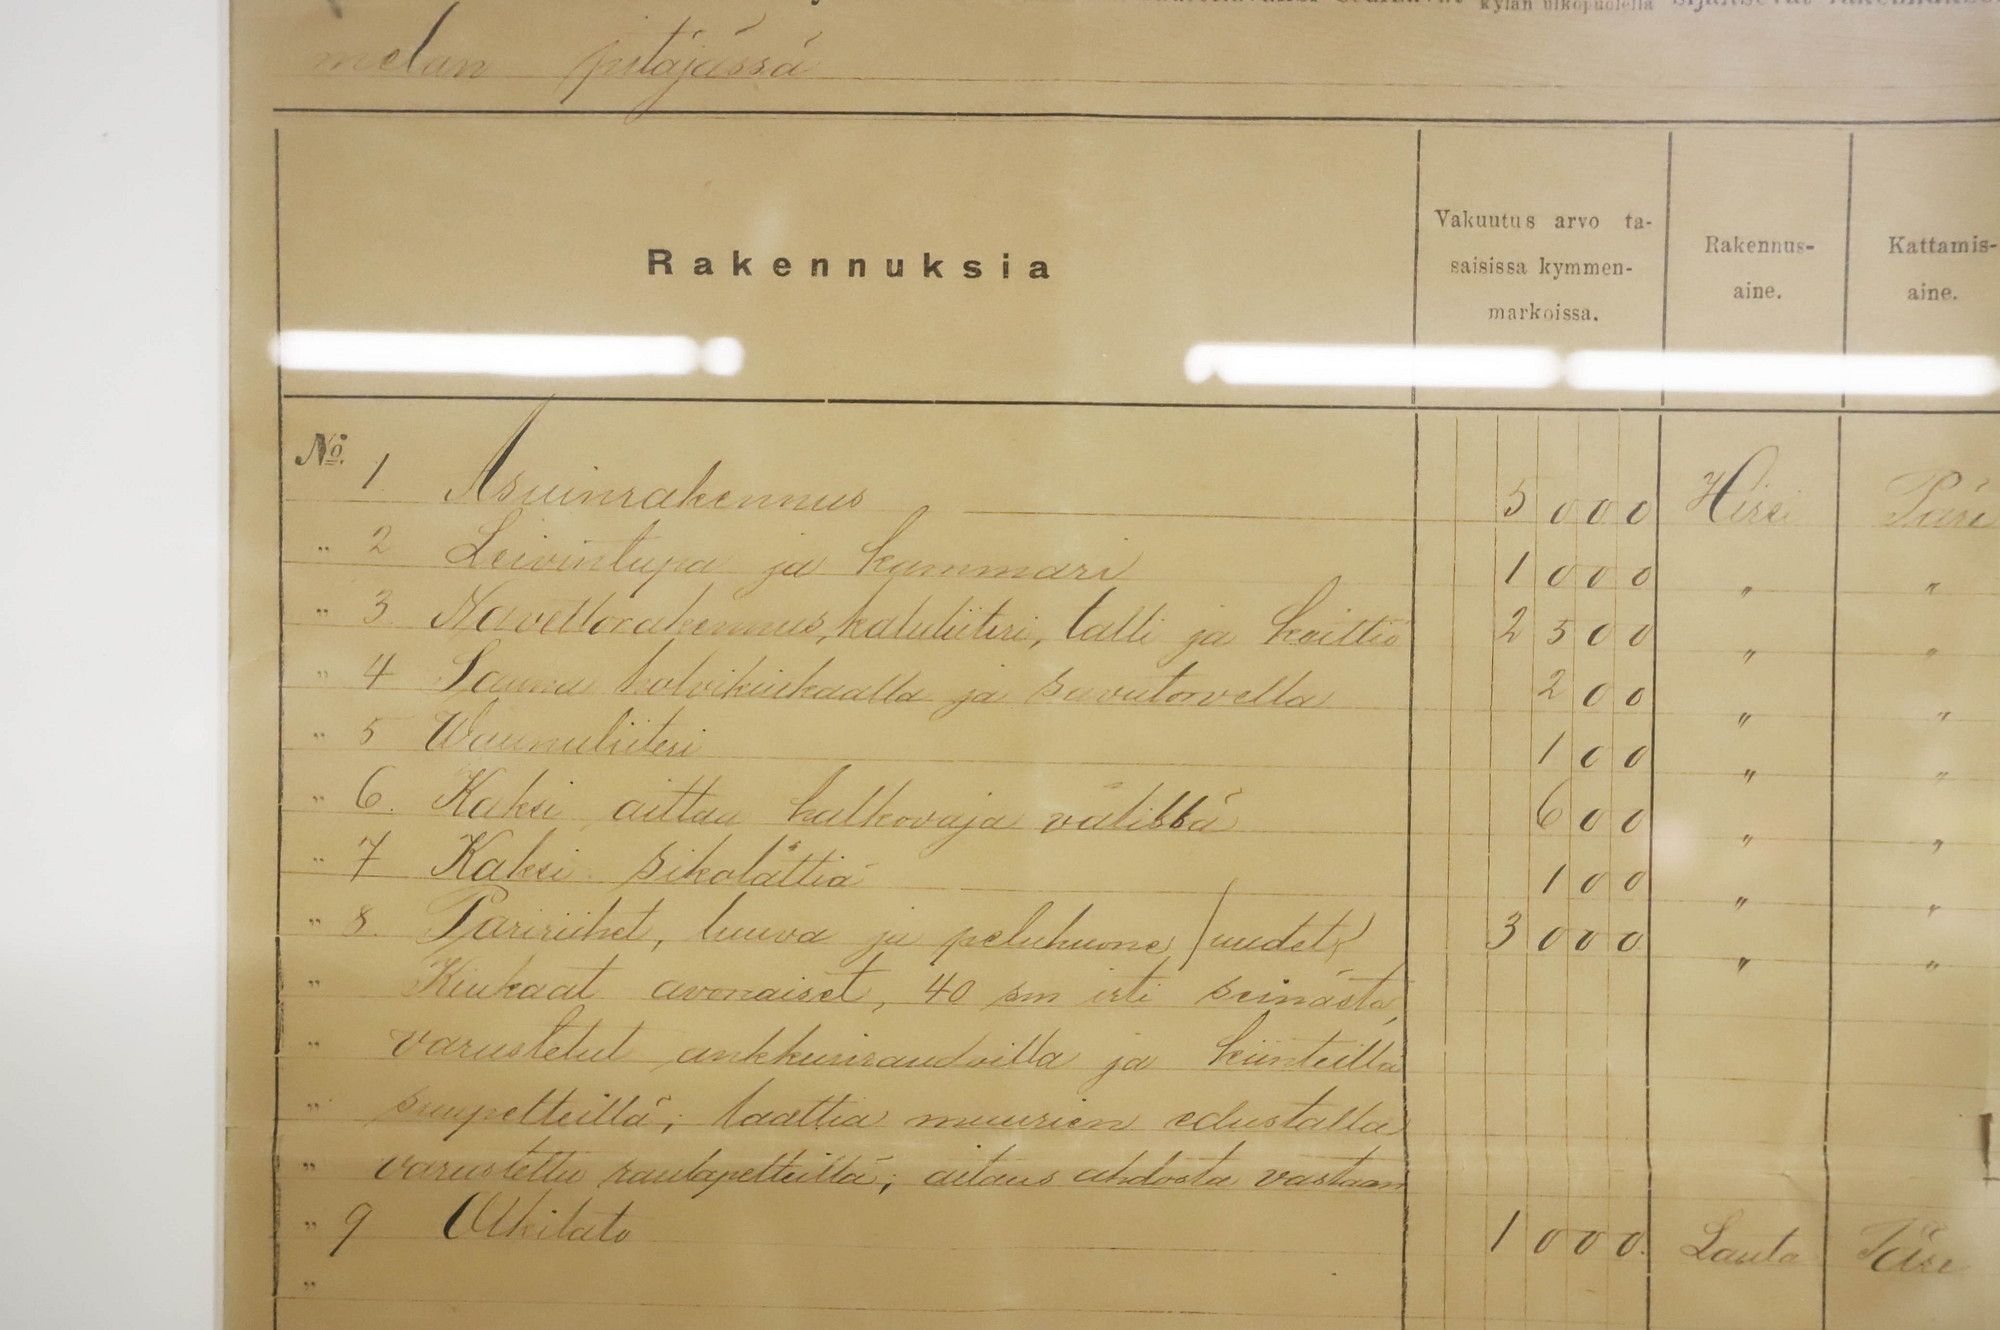 kylän ulkopuolella sijaitsevat
melan pitäjässä
Rakennuksia
Vakuutus arvo ta-
saisissa kymmen-
markoissa.
Rakennus-
aine.
Kattamis-
aine.
No. 1 Asuinrakennus 5000 Hirsi Päre
" 2 Leivintupa ja kammari 1000 " "
" 3 Navettorakennus, kaluliiteri, talli ja keittiö 2500 " "
" 4 Sauna holvikiukaalla ja savutorvella 200 " "
" 5 Waunuliiteri 100 " "
" 6. Kaksi aittaa halkovaja välissä 600 " "
" 7 Kaksi sikolättiä 100 " "
" 8. Paririihet, luuva ja peluhuone /uudet/ 3000 " "
" Kiukaat avonaiset, 40 sm irti seinästä,
" varustetut ankkuriraudoilla ja kiinteillä
" suupelteillä; laattia muurien edustalla
" varustettu rautapelteillä; aitaus ahdosta vastaan
" 9 Olkilato 1000. Lauta Päre
"